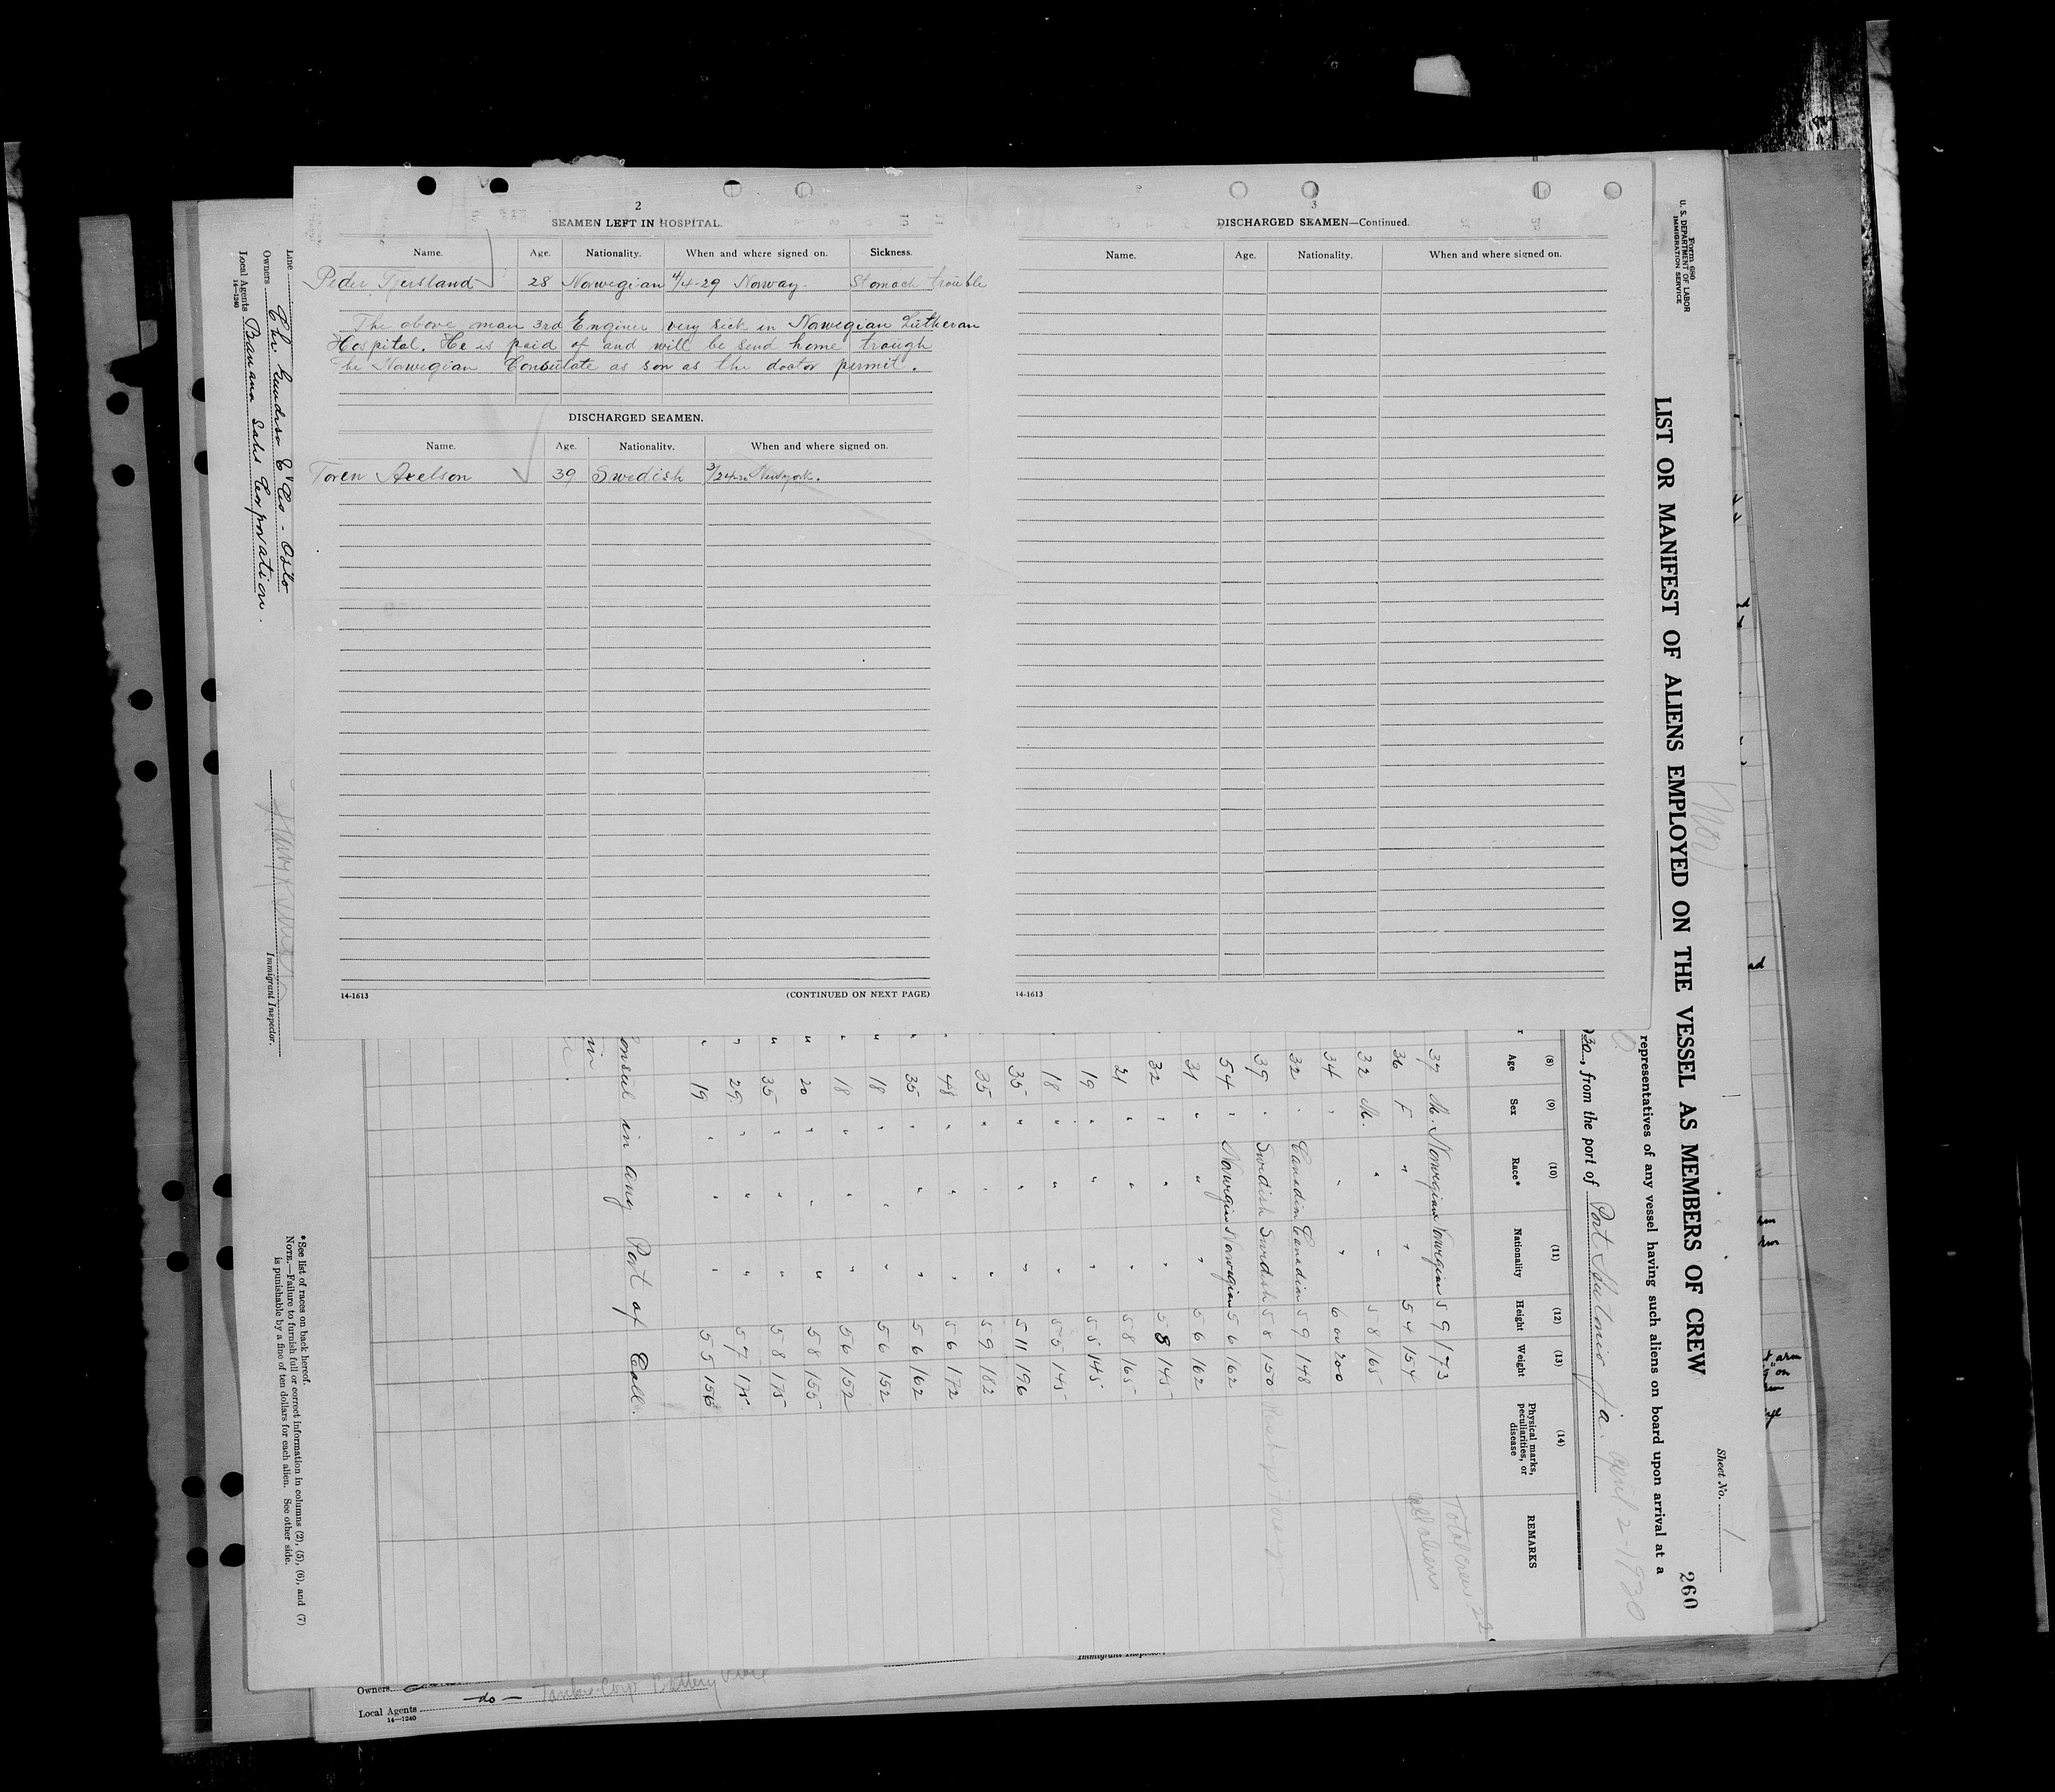 2
SEAMEN LEFT IN HOSPITAL.
Name. Age. Nationality. When and where signed on. Sickness.
Peder Tjersland 28 Norwegian 4/4-29 Norway. Stomach trouble
The above man 3rd Enginer very sick in Norwegian Lutheran
Hospital. He is paid of and will be send home trough
the Norwegian Consulate as son as the doctor permit.
DISCHARGED SEAMEN.
Name. Age. Nationality. When and where signed on.
Toren Axelson 39 Swedish 3/24-30 Newyork.
14-1613 (CONTINUED ON NEXT PAGE)
3
DISCHARGED SEAMEN—Continued.
Name. Age. Nationality. When and where signed on.
14-1613
Form 680
U. S. DEPARTMENT OF LABOR
IMMIGRATION SERVICE
Sheet No. 1
260
LIST OR MANIFEST OF ALIENS EMPLOYED ON THE VESSEL AS MEMBERS OF CREW
representatives of any vessel having such aliens on board upon arrival at a
30, from the port of Port Antonio Ja. April 2-1930
(8) (9) (10) (11) (12) (13) (14)
Age Sex Race* Nationality Height Weight Physical marks, peculiarities, or disease REMARKS
37 M. Norwegian Norwegian 5 9 173 Total crew 22
36 F " " 5 4 154 all aliens
32 M. " " 5 8 165
34 " " " 6 00 200
32 " Canadian Canadian 5 9 148
39 " Swedish Swedish 5 8 150
54 " Norwegian Norwegian 5 6 162
31 " " " 5 6 162
32 " " " 5 8 145
21 " " " 5 8 165
19 " " " 5 5 145
18 " " " 5 5 145
35 " " " 5 11 196
35 " " " 5 9 182
48 " " " 5 6 172
35 " " " 5 6 162
18 " " " 5 6 152
18 " " " 5 6 152
20 " " " 5 8 155
35 " " " 5 8 175
29 " " " 5 7 175
19 " " " 5 5 156
onsul in any Port of Call.
in
Line
Owners Chr Gundersen & Co - Oslo
Local Agents Banana Sales Corporation.
14-1240
Immigrant Inspector.
*See list of races on back hereof.
NOTE.—Failure to furnish full or correct information in columns (2), (5), (6), and (7)
is punishable by a fine of ten dollars for each alien. See other side.
Immigrant Inspector.
Owners
Local Agents -do- Tankers Corp Battery
14-1240